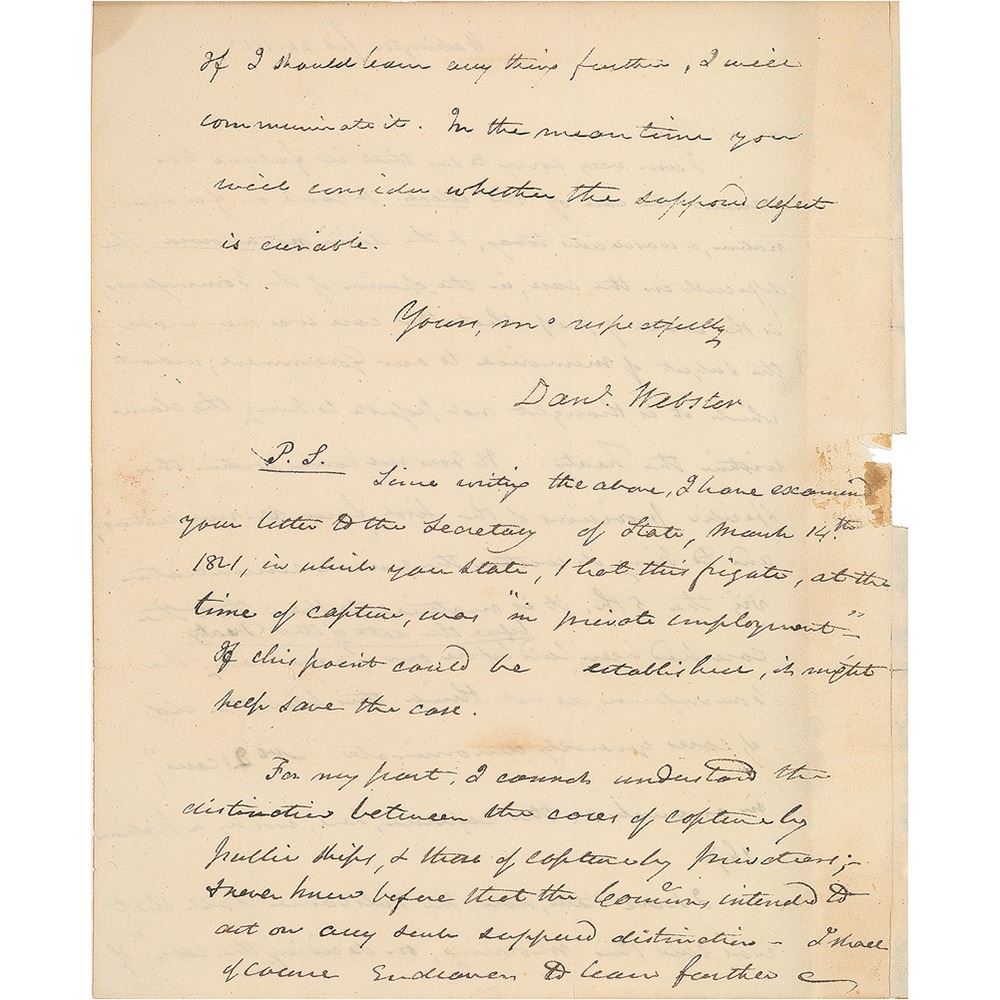 If I should learn any thing further, I will
communicate it. In the mean time you
will consider whether the supposed defect
is curable.
Yours, mo respectfully
Danl. Webster
P. S.
Since writing the above, I have examined
your letter to the Secretary of State, March 14th
1821, in which you state, that this frigate, at the
time of capture, was "in private employment"-
If this point could be established, it might
help save the case.
For my part, I cannot understand the
distinction between the cases of capture by
public ships, & those of capture by privateers;-
I never knew before that the Comrs intended to
act on any such supposed distinction - I shall
of course endeavor to learn further